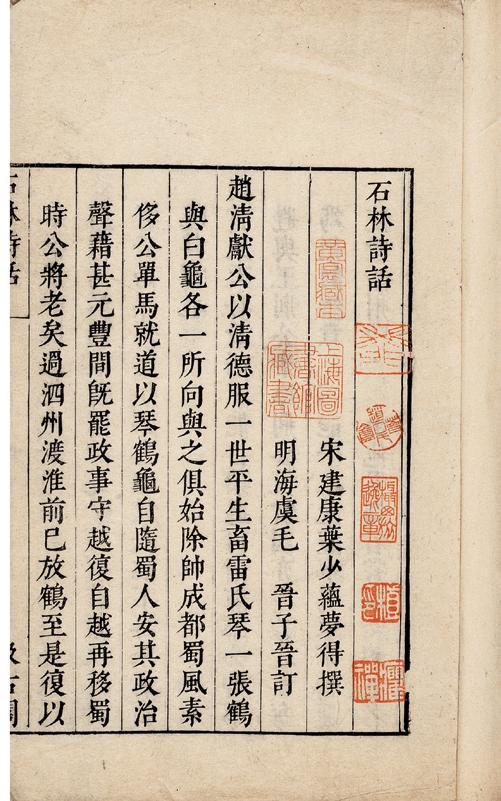 石林詩話
宋建康葉少蘊夢得撰
明海虞毛晉子晉訂
趙清獻公以清德服一世平生畜雷氏琴一張鶴
與白龜各一所向與之俱始除帥成都蜀風素
侈公單馬就道以琴鶴龜自隨蜀人安其政治
聲藉甚元豐間旣罷政事守越復自越再移蜀
時公將老矣過泗州渡淮前已放鶴至是復以
石林詩話
汲古閣
上海圖書館藏書